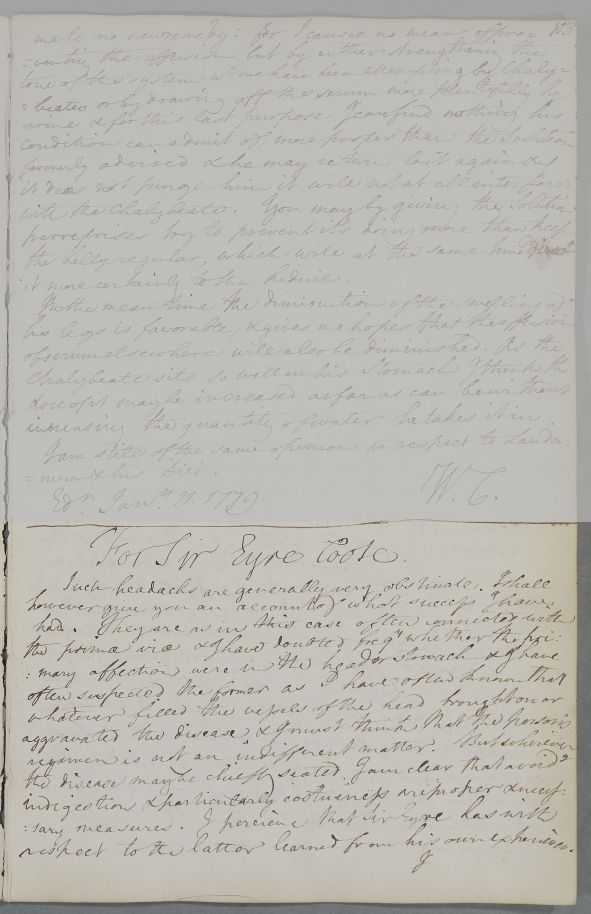 163
me to no new remedy: for I can see no means of pre=
=venting the effusion but by either strengthening the
tone of the system wc we have been attempting by Chaly=
=beates or by drawing off the serum more plentifully by
urine & for this last purpose I can find nothing his
condition can admit of, more proper than the Solution
formerly advised & he may return to it again & if
it does not purge him it will not at all interfere
with the Chalybeate. You may by giving the Solution
parreprises try to prevent its doing more than keep
the belly regular, which will at the same time direct
it more certainly to the kidneys.
In the mean time the diminution of the swelling of
his legs is favorable, & gives me hopes that the effusion
of serum elsewhere will also be diminished. As the
Chalybeate sits so well on his stomach I think the
dose of it may be increased as far as can be without
increasing the quantity of water he takes it in
I am still of the same opinion in respect to Lauda:
=num & his Diet.
Edr. Jany. 1779. W.C.
For Sir Eyre Coote.
Such headachs are generally very obstinate. I shall
however give you an account of what success I have
had. They are as in this case often connected with
the primæ viæ & I have doubted freqy whether the pri:
:mary affection were in the head or stomach & I have
often suspected the former as I have often known that
whatever filled the vessels of the head brought on or
aggravated the disease & I must think that the persons
regimen is not an indifferent matter. But wherever
the disease may be chiefly seated I am clear that avoidg
indigestion & particularly costiveness are proper & neces:
:sary measures. I perceive that Sir Eyre has with
respect to the latter learned from his own experience.
I